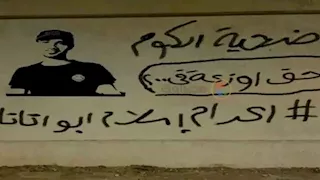 ضحية الكوم
حق اوزعة ...؟
# اعدام إسلام ابو اتاتا